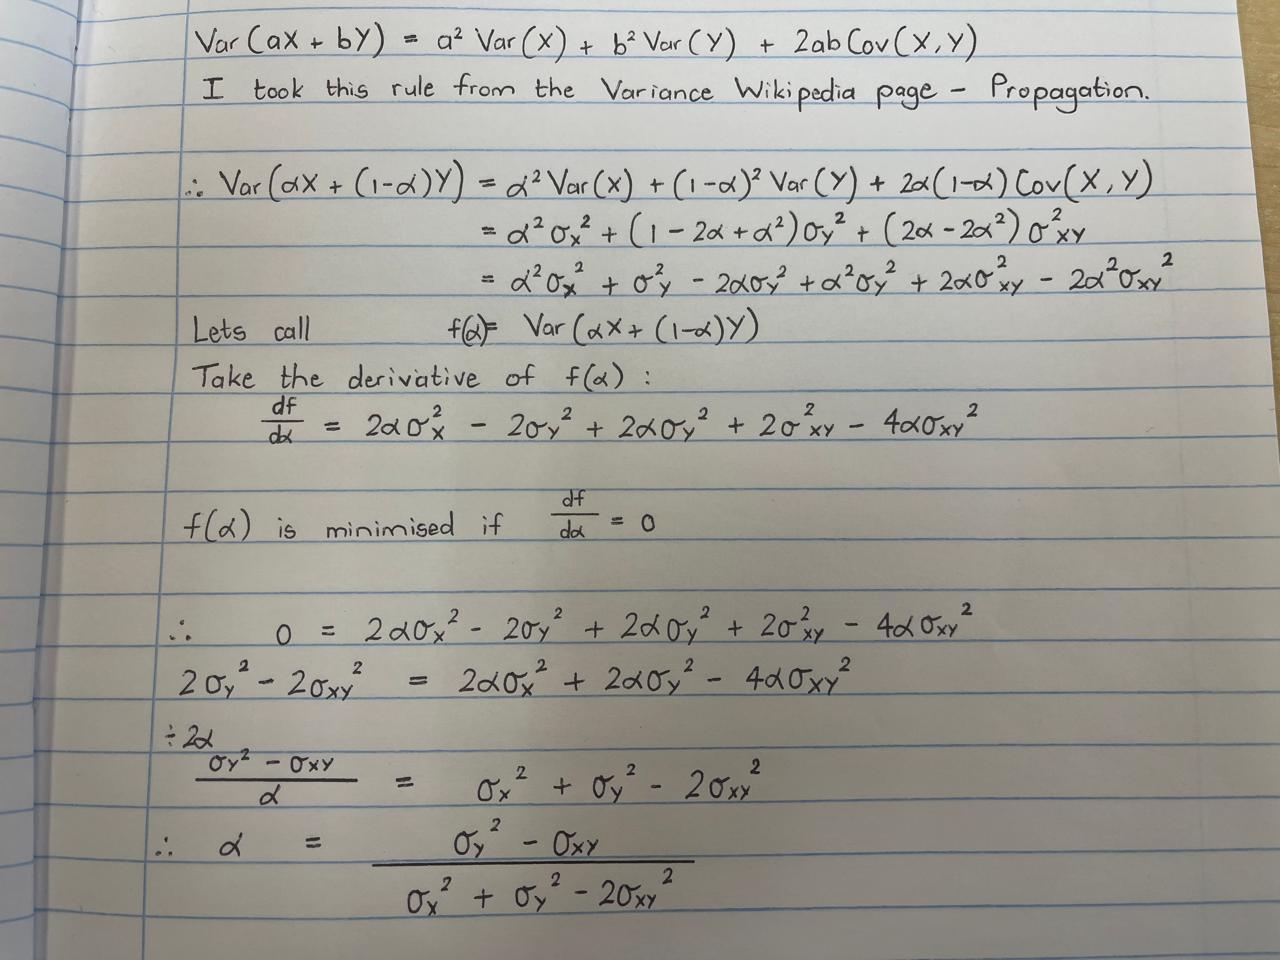 Var(aX + bY) = a² Var(X) + b² Var(Y) + 2ab Cov(X, Y)
I took this rule from the Variance Wikipedia page - Propagation.
∴ Var(αX + (1-α)Y) = α² Var(X) + (1-α)² Var(Y) + 2α(1-α) Cov(X, Y)
= α²σ_X² + (1 - 2α + α²)σ_Y² + (2α - 2α²)σ²_XY
= α²σ_X² + σ²_Y - 2ασ_Y² + α²σ_Y² + 2ασ²_XY - 2α²σ_XY²
Lets call f(α)= Var(αX + (1-α)Y)
Take the derivative of f(α) :
df/dα = 2ασ²_X - 2σ_Y² + 2ασ_Y² + 2σ²_XY - 4ασ_XY²
f(α) is minimised if df/dα = 0
∴ 0 = 2ασ_X² - 2σ_Y² + 2ασ_Y² + 2σ²_XY - 4ασ_XY²
2σ_Y² - 2σ_XY² = 2ασ_X² + 2ασ_Y² - 4ασ_XY²
÷ 2α
(σ_Y² - σ_XY)/α = σ_X² + σ_Y² - 2σ_XY²
∴ α = (σ_Y² - σ_XY)/(σ_X² + σ_Y² - 2σ_XY²)